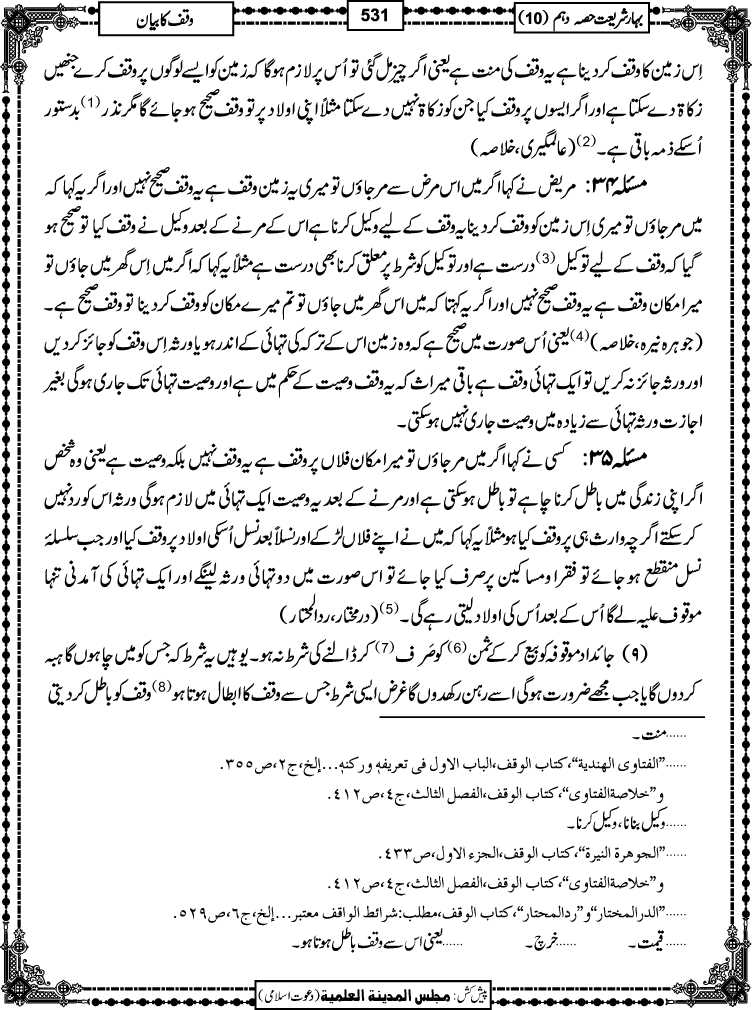 بہار شریعت حصہ دہم (10)
531
وقف کا بیان
اِس زمین کا وقف کر دینا ہے یہ وقف کی منت ہے یعنی اگر چیز مل گئی تو اُس پر لازم ہوگا کہ زمین کو ایسے لوگوں پر وقف کرے جنھیں
زکاۃ دے سکتا ہے اور اگر ایسوں پر وقف کیا جن کو زکاۃ نہیں دے سکتا مثلاً اپنی اولاد پر تو وقف صحیح ہو جائے گا مگر نذر (1) بدستور
اُسکے ذمہ باقی ہے۔ (2) (عالمگیری، خلاصہ)
مسئلہ ۳۴: مریض نے کہا اگر میں اس مرض سے مرجاؤں تو میری یہ زمین وقف ہے یہ وقف صحیح نہیں اور اگر یہ کہا کہ
میں مرجاؤں تو میری اِس زمین کو وقف کر دینا یہ وقف کے لیے وکیل کرنا ہے اس کے مرنے کے بعد وکیل نے وقف کیا تو صحیح ہو
گیا کہ وقف کے لیے توکیل (3) درست ہے اور توکیل کو شرط پر معلق کرنا بھی درست ہے مثلاً یہ کہا کہ اگر میں اِس گھر میں جاؤں تو
میرا مکان وقف ہے یہ وقف صحیح نہیں اور اگر یہ کہتا کہ میں اس گھر میں جاؤں تو تم میرے مکان کو وقف کر دینا تو وقف صحیح ہے۔
(جوہرہ نیرہ، خلاصہ) (4) یعنی اُس صورت میں صحیح ہے کہ وہ زمین اس کے ترکہ کی تہائی کے اندر ہو یا ورثہ اِس وقف کو جائز کر دیں
اور ورثہ جائز نہ کریں تو ایک تہائی وقف ہے باقی میراث کہ یہ وقف وصیت کے حکم میں ہے اور وصیت تہائی تک جاری ہوگی بغیر
اجازت ورثہ تہائی سے زیادہ میں وصیت جاری نہیں ہوسکتی۔
مسئلہ ۳۵: کسی نے کہا اگر میں مرجاؤں تو میرا مکان فلاں پر وقف ہے یہ وقف نہیں بلکہ وصیت ہے یعنی وہ شخص
اگر اپنی زندگی میں باطل کرنا چاہے تو باطل ہوسکتی ہے اور مرنے کے بعد یہ وصیت ایک تہائی میں لازم ہوگی ورثہ اس کو رد نہیں
کرسکتے اگرچہ وارث ہی پر وقف کیا ہو مثلاً یہ کہا کہ میں نے اپنے فلاں لڑکے اور نسلاً بعد نسل اُسکی اولاد پر وقف کیا اور جب سلسلۂ
نسل منقطع ہو جائے تو فقرا و مساکین پر صرف کیا جائے تو اس صورت میں دو تہائی ورثہ لینگے اور ایک تہائی کی آمدنی تنہا
موقوف علیہ لے گا اُس کے بعد اُس کی اولاد لیتی رہے گی۔ (5) (درمختار، ردالمحتار)
(۹) جائداد موقوفہ کو بیع کر کے ثمن (6) کو صَرف (7) کر ڈالنے کی شرط نہ ہو۔ یوہیں یہ شرط کہ جس کو میں چاہوں گا ہبہ
کردوں گا یا جب مجھے ضرورت ہوگی اسے رہن رکھدوں گا غرض ایسی شرط جس سے وقف کا ابطال ہوتا ہو (8) وقف کو باطل کر دیتی
......منت۔
......"الفتاوی الھندیۃ"، کتاب الوقف، الباب الاول فی تعریفہٖ ورکنہٖ...إلخ، ج۲، ص۳۵۵.
و"خلاصۃ الفتاوی"، کتاب الوقف، الفصل الثالث، ج۴، ص۴۱۲.
......وکیل بنانا، وکیل کرنا۔
......"الجوھرۃ النیرۃ"، کتاب الوقف، الجزء الاول، ص۴۳۳.
و"خلاصۃ الفتاوی"، کتاب الوقف، الفصل الثالث، ج۴، ص۴۱۲.
......"الدرالمختار"و"ردالمحتار"، کتاب الوقف، مطلب: شرائط الواقف معتبر...إلخ، ج۶، ص۵۲۹.
......قیمت۔ ......خرچ۔ ......یعنی اس سے وقف باطل ہوتا ہو۔
پیش کش: مجلس المدینة العلمیة (دعوت اسلامی)